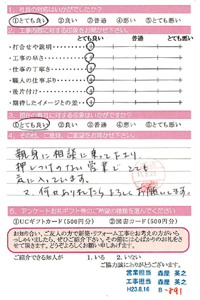 1. 社員の対応はいかがでしたか?
①とても良い ②良い ③普通 ④悪い ⑤とても悪い
2. 工事内容に対する印象をお聞かせ下さい。
とても良い 普通 とても悪い
・打合せや説明
・工事の早さ
・仕事の丁寧さ
・職人の仕事ぶり
・後片付け
・期待したイメージとの差
①とても良い ②良い ③普通 ④悪い ⑤とても悪い
4. その他、ご意見、ご要望をお聞かせ下さい。
親身に相談に乗って下さり、
押しつけのない営業でとても
気に入っています。
又、何かありましたらよろしくお願いします。
5. アンケートお礼ギフト券のご希望の種類を選んでください
①UCギフトカード(500円分) ②図書カード(500円分)
お知り合い、ご友人の方で新築・リフォーム工事をお考えの方がいら
っしゃいましたら、ぜひご紹介下さい。その際には心ばかりのお礼をさ
せて頂きます。誠意を持って対応させて頂きます。
ご紹介できる知人が 1.いる 2.いない
ご協力誠にありがとうございました。
営業担当 森屋 英之
工事担当 森屋 英之
H23.8.16 B-891